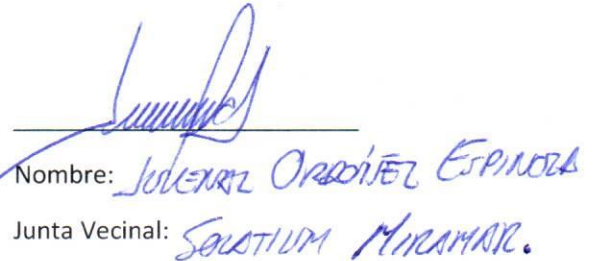 Nombre: JUVENAL ORDOÑEZ ESPINOZA
Junta Vecinal: SOLATIUM MIRAMAR.